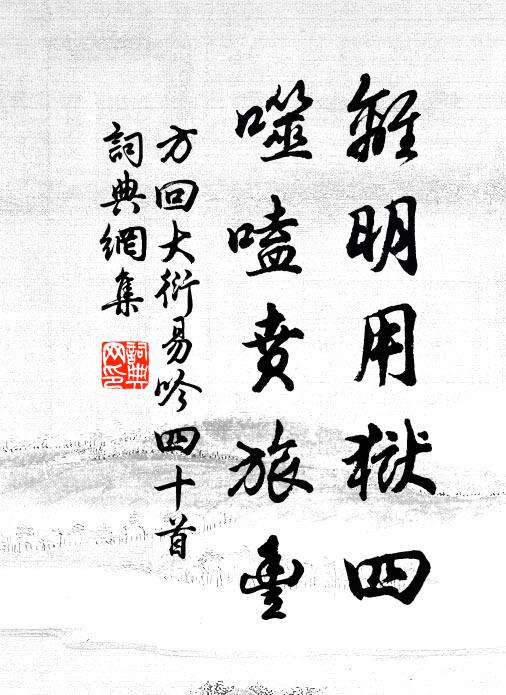 離明用獄四
噬嗑賁旅豐
方回大衍易吟四十首
詞典網集
詞典
网印